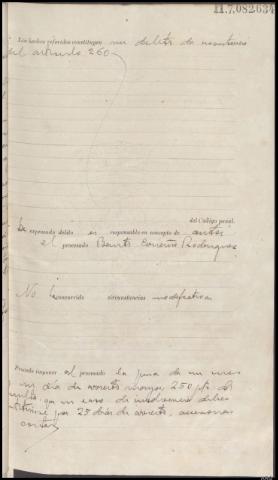 H.7.082.634
Los hechos referidos constituyen un delito de
del artículo 260
del Código penal.
De expresado delito es responsable en concepto de autor
el procesado Benito Rodríguez
No ha concurrido circunstancias modificativas
Procede imponer al procesado la pena de un mes
y un día de arresto mayor 250 pts de
multa que en caso de insolvencia
por 25 días de arresto, accesorias
costas